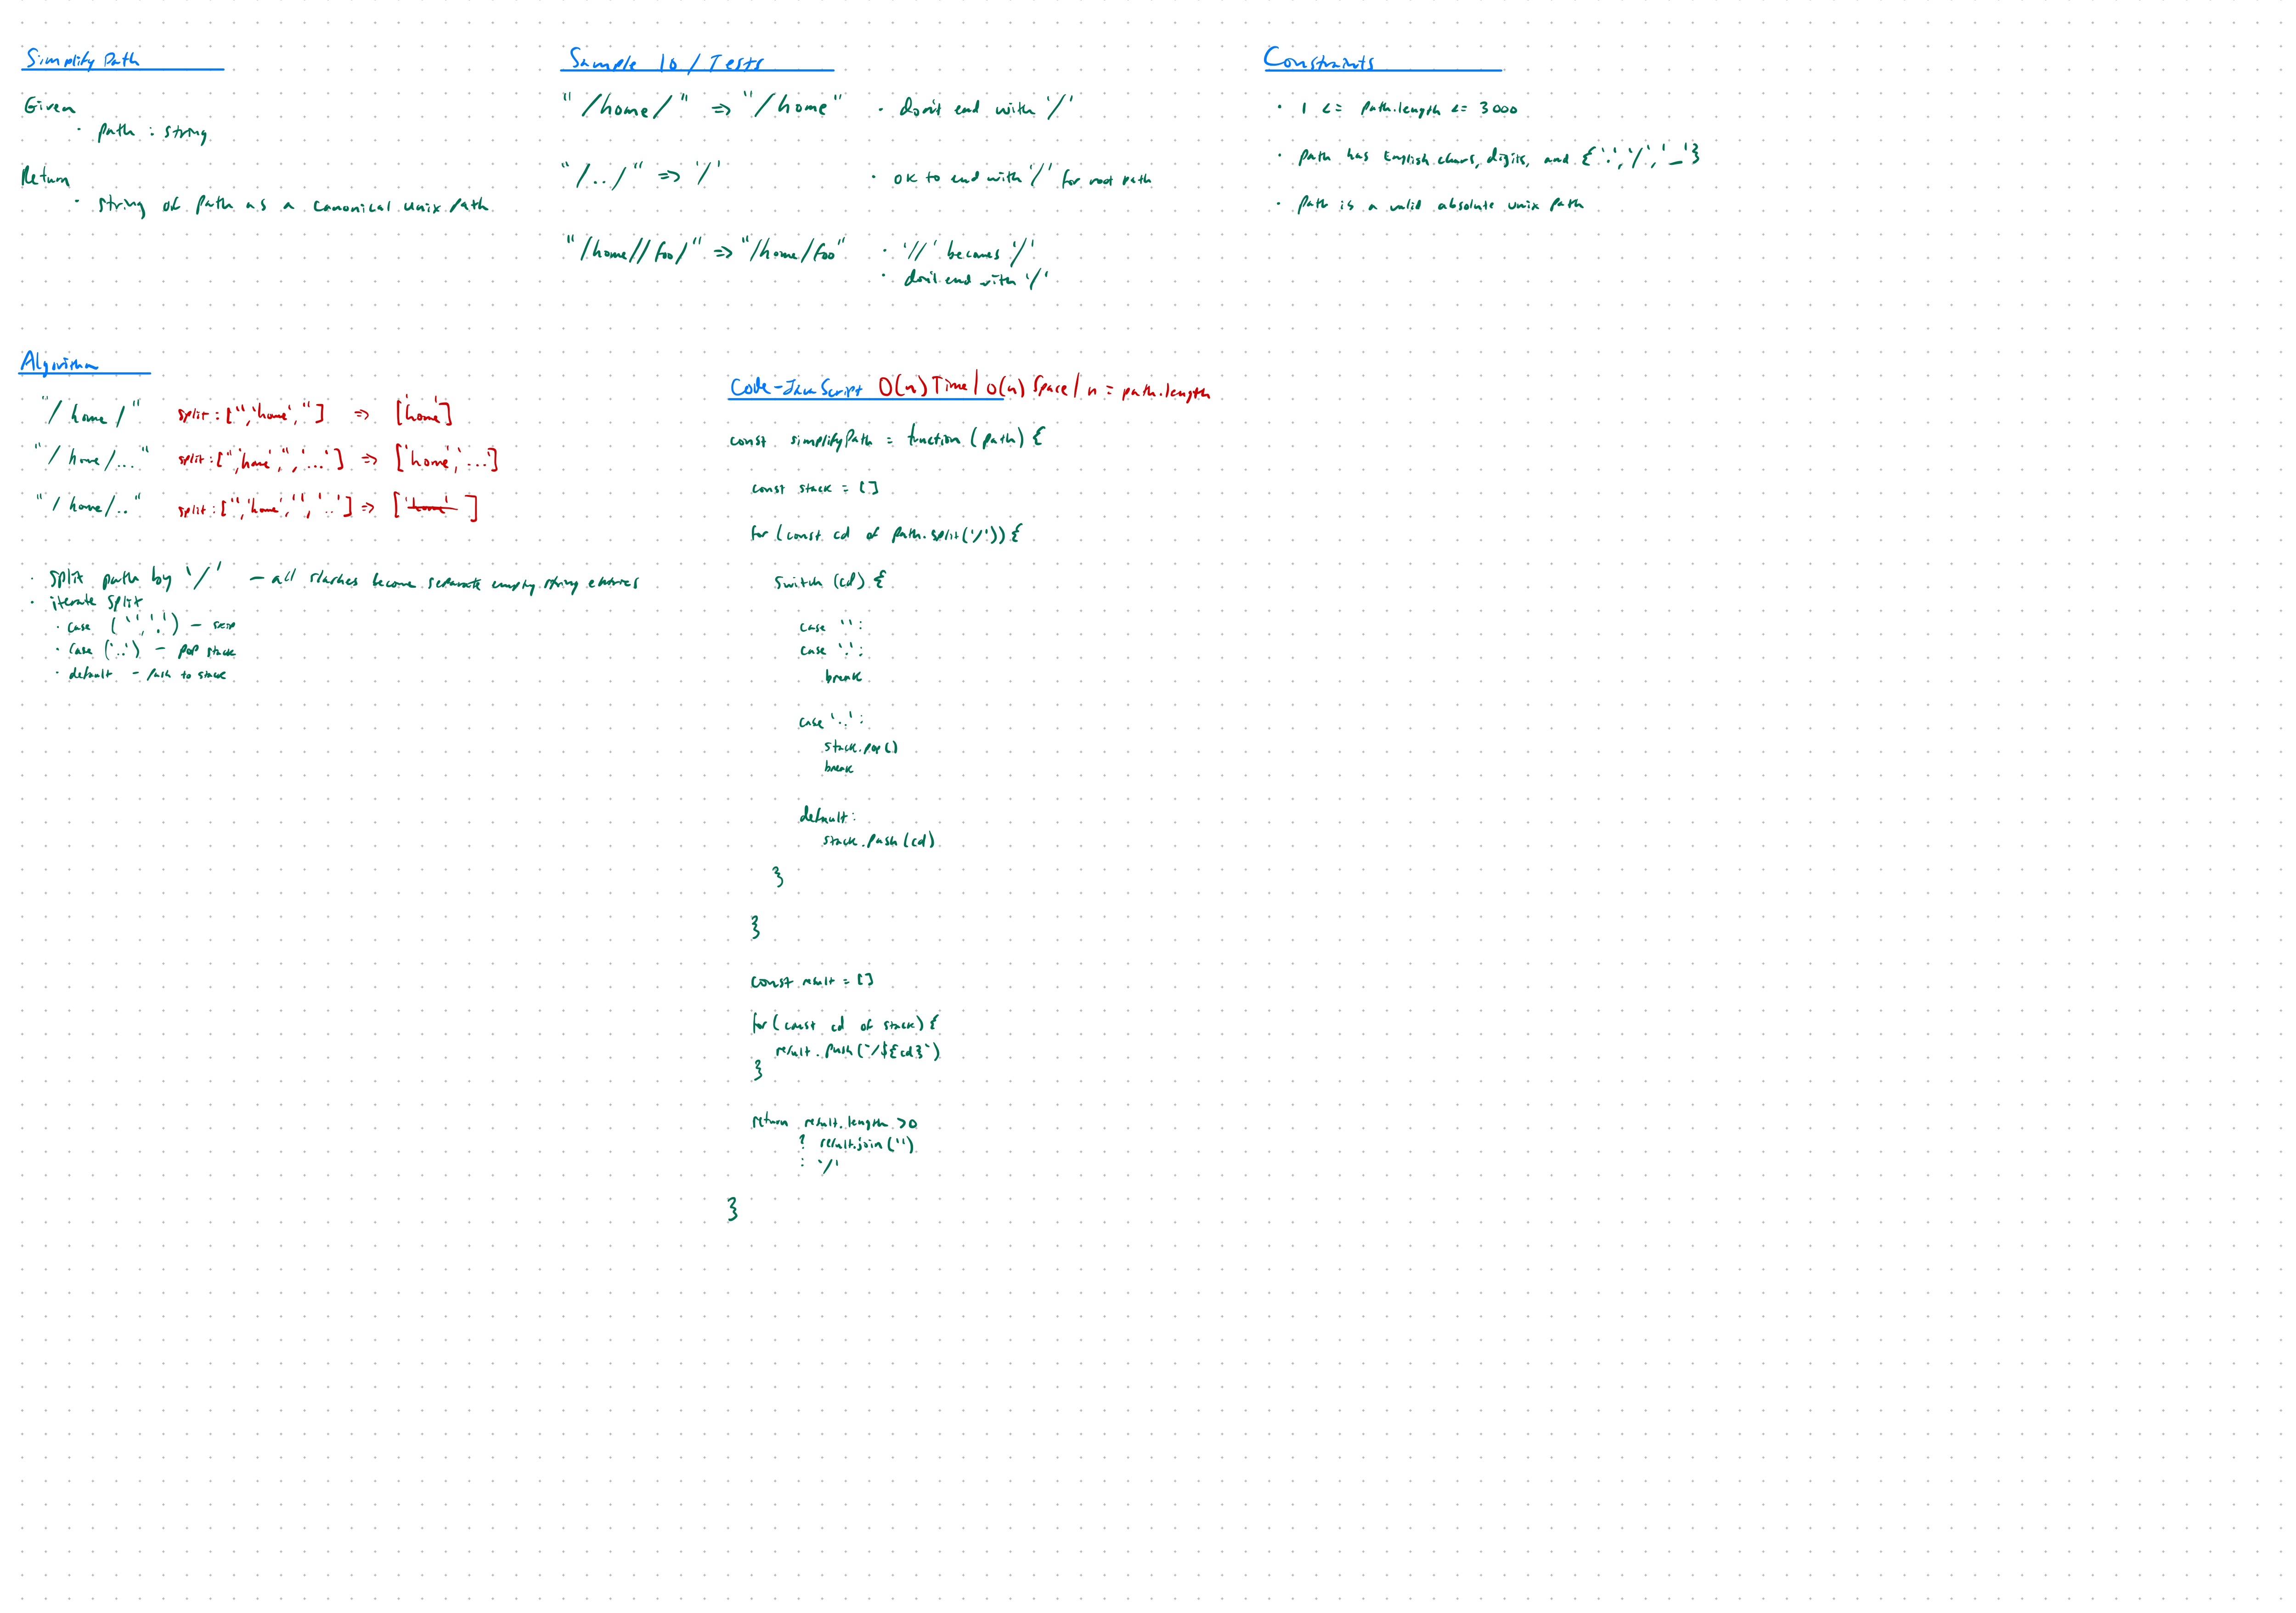 Simplify Path
Given
· path : string
Return
· string of path as a canonical unix path
Sample IO / Tests
"/home/" => "/home" · don't end with '/'
"/../" => '/' · ok to end with '/' for root path
"/home//foo/" => "/home/foo" · '//' becomes '/'
· don't end with '/'
Constraints
· 1 <= path.length <= 3000
· path has English chars, digits, and {'.', '/', '_'}
· path is a valid absolute unix path
Algorithm
"/home/" split: ['', 'home', ''] => ['home']
"/home/..." split: ['', 'home', '', '...'] => ['home', '...']
"/home/.." split: ['', 'home', '', '..'] => ['home']
· split path by '/' - all slashes become separate empty string entries
· iterate split
· case ('', '.') - skip
· case ('..') - pop stack
· default - push to stack
Code - JavaScript O(n) Time | O(n) Space | n = path.length
const simplifyPath = function (path) {
const stack = []
for (const cd of path.split('/')) {
switch (cd) {
case '':
case '.':
break
case '..':
stack.pop()
break
default:
stack.push(cd)
}
}
const result = []
for (const cd of stack) {
result.push(`/${cd}`)
}
return result.length > 0
? result.join('')
: '/'
}